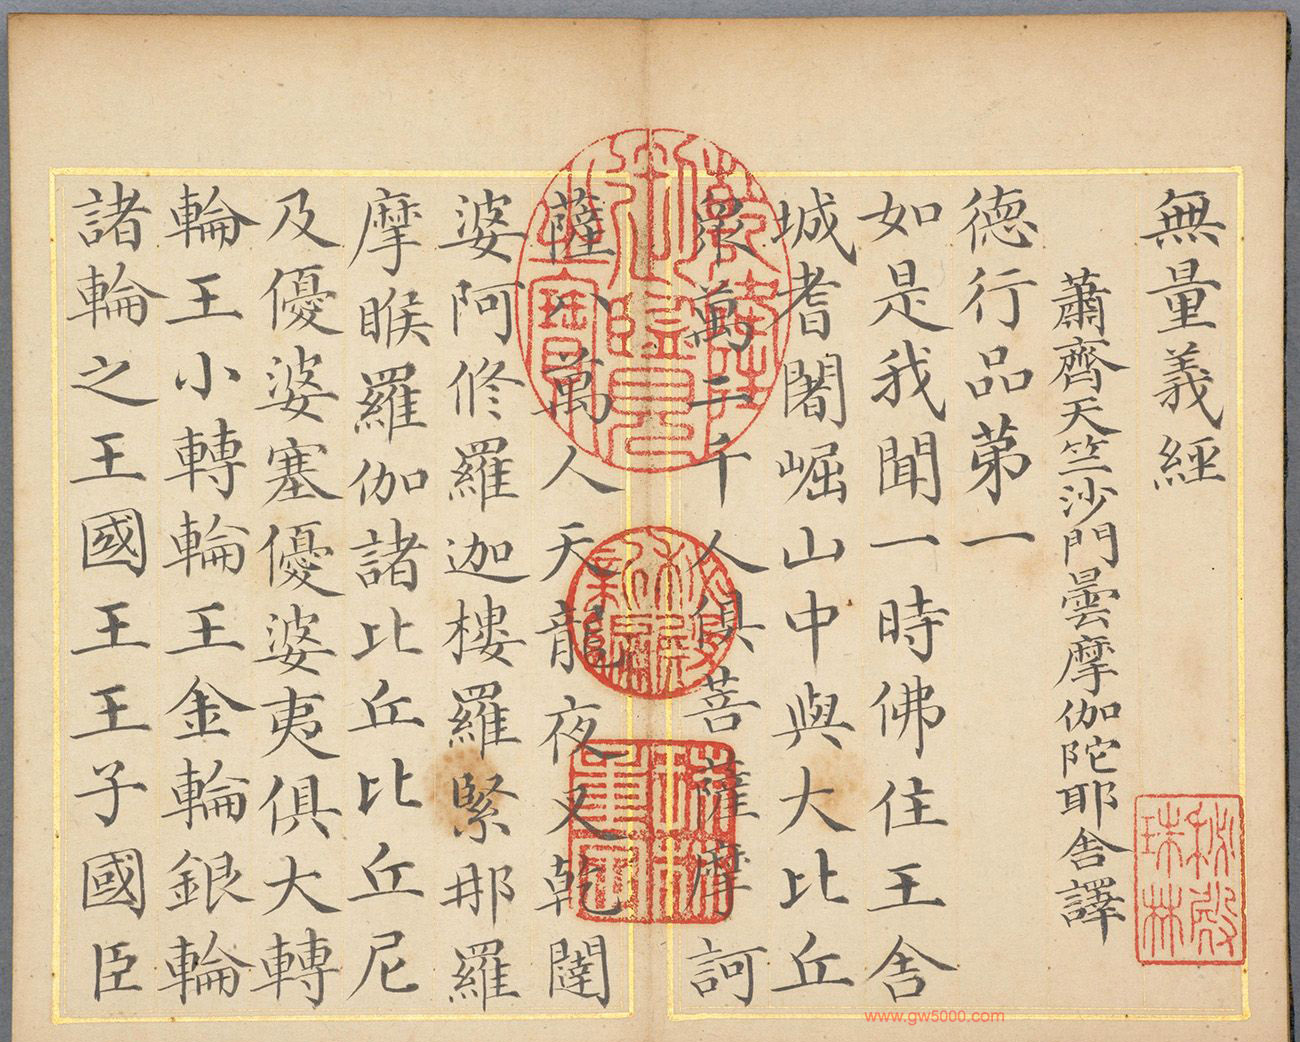 無量義經
蕭齊天竺沙門曇摩伽陀耶舍譯
德行品第一
如是我聞一時佛住王舍
城耆闍崛山中與大比丘
眾萬二千人俱菩薩摩訶
薩八萬人天龍夜叉乾闥
婆阿脩羅迦樓羅緊那羅
摩睺羅伽諸比丘比丘尼
及優婆塞優婆夷俱大轉
輪王小轉輪王金輪銀輪
諸輪之王國王王子國臣
秘殿
珠林
www.gw5000.com